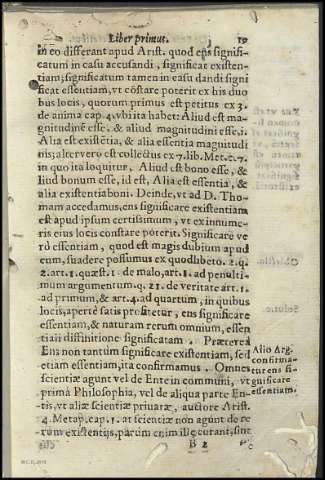 Liber primus. 19
in eo differant apud Arist. quod ens signifi-
catum in casu accusandi, significat existen-
tiam; significatum tamen in casu dandi signi
ficat essentiam, vt cõstare poterit ex his duo
bus locis, quorum primus est petitus ex 3.
de anima cap. 4. vbi ita habet: Aliud est ma-
gnitudinẽ esse, & aliud magnitudini esse, i.
Alia est existẽtia, & alia essentia magnitudi
nis; alter verò est collectus ex 7. lib. Met. c. 7.
in quo ita loquitur, Aliud est bono esse, &
aliud bonum esse, id est, Alia est essentia, &
alia existentia boni. Deinde, vt ad D. Tho-
mam accedamus, ens significare existentiam
est apud ipsum certissimum, vt ex innume-
ris eius locis constare poterit. Significare ve
rò essentiam, quod est magis dubium apud
eum, suadere possumus ex quodlibeto. 2. q.
2. art. 1. quæst. 1. de malo, art. 1. ad penulti-
mum argumentum. q. 21. de veritate art. 1.
ad primum, & art. 4. ad quartum, in quibus
locis, apertè satis profitetur, ens significare
essentiam, & naturam rerum omnium, essen
tiali diffinitione significatam. Præterea
Ens non tantum significare existentiam, sed
etiam essentiam, ita confirmamus. Omnes
scientiæ agunt vel de Ente in communi, vt
prima Philosophia, vel de aliqua parte En-
tis, vt aliæ scientiæ priuatæ, auctore Arist.
4. Metap. cap. 1. at scientiæ non agunt de re
rum existentijs, parùm enim ille curant, sint
Alio Arg.
confirma-
tur ens si-
gnificare
essentiam.
B 2